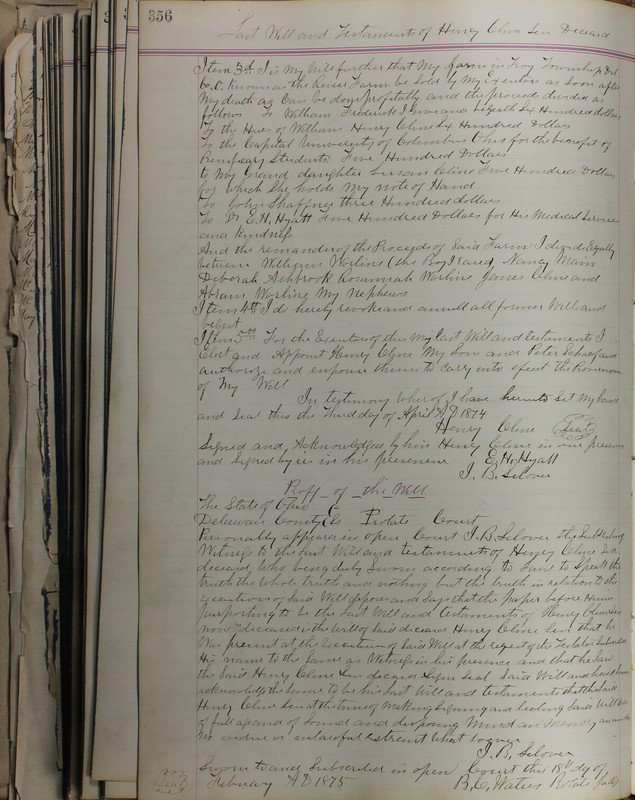 356
Last Will and Testaments of Henry Cline Sen Deceasd
Item 3d It is My Will further that My Farm in Troy Township Del
Co. O, Known as the Farm be Sold by My Executors as Soon after
My death as Can be done profitably and the proceed divided as
follows To William Frederick I Give and beqeath Six Hundred dollars
To the Heirs of William Henry Cline Six Hundred Dollars
To the Capital University of Columbus Ohio for the benefit of
Students Five Hundred Dollars
to My Grand daughter Susan Cline Five Hundred Dollars
for which She holds My note of Hand
To John Shaffner three Hundred dollars
To Dr E. H. Hyatt Five Hundred Dollars for His Medical Services
and Kindness
And the remainder of the Proceeds of Said Farm I divide Equally
between William Worline (the Boy I raised) Nancy Main
Deborah Ashbrook Rosannah Worline James Cline and
Abram Worline My Nephews
Item 4th I do hereby revoke and annull all former Will and

Item 5th For the Executors of this My Last Will and testaments I
Elect and Appoint Henry Cline My Son and Peter and
authorize and empower them to carry into efect the
of My Will
In testimony wherof I have hereunto Set My hand
and Seal this the third day of April A D 1874
Henry Cline Seal
Signed and Acknowledged by him Henry Cline in our presence
and Signed by us in his presence E. H. Hyatt
J. B. Selover
Proff of the Will
The State of Ohio
Delaware County Ss Probate Court
Personally appeared in open Court J. B. Selover the Subscribing
Witness to the Last Will and testaments of Henry Cline Sen
deceased, who being duly Sworn according to Law to Speak the
truth the whole truth and nothing but the truth in relation to the
execution of Said Will deposes and Says that the paper before Him
purporting to be the Last Will and testaments of Henry Cline Sen
now deceased is the Will of Said deceased Henry Cline Sen that he
Was present at the Execution of Said Will at the reqest of the Testator Subscribed
His name to the Same as Witness in his presence and that he Saw
the Said Henry Cline Sen deceased Sign Seal Said Will and heard him
acknowledge the Same to be his Last Will and testaments that the Said
Henry Cline Sen at the time of Making Signing and Sealing Said Will Was
of full age and of Sound and disposing Mind and Memory and under
no undue or unlawful restraint What So ever
J. B. Selover
Sworn to and Subscribed in open Court this 18th day of
February A D 1875 B. C. Waters Probate Judge
Seal